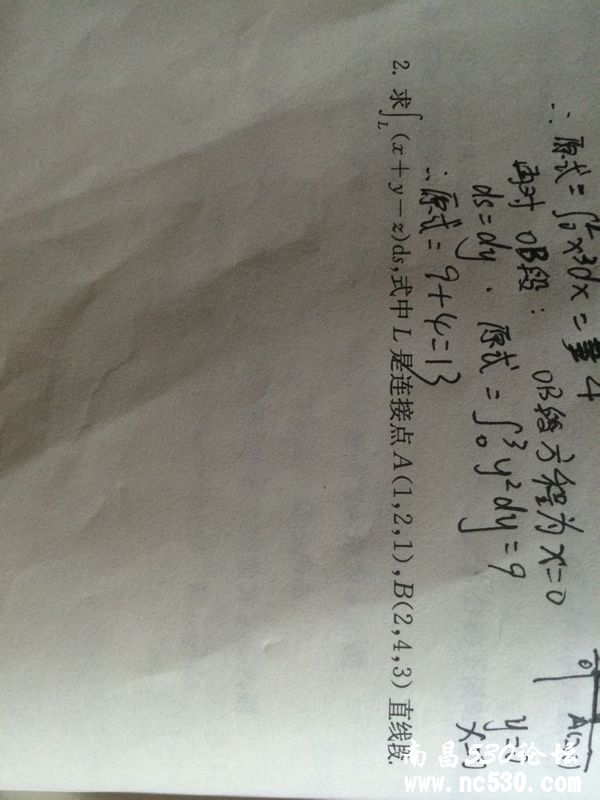 ∴原式=∫₀²x³dx=4
再对 OB段: OB段方程为 x=0
ds=dy. 原式=∫₀³y²dy=9
∴原式=9+4=13
2. 求∫_L(x+y−z)ds,式中 L 是连接点 A(1,2,1),B(2,4,3) 直线段.
0
www.nc530.com